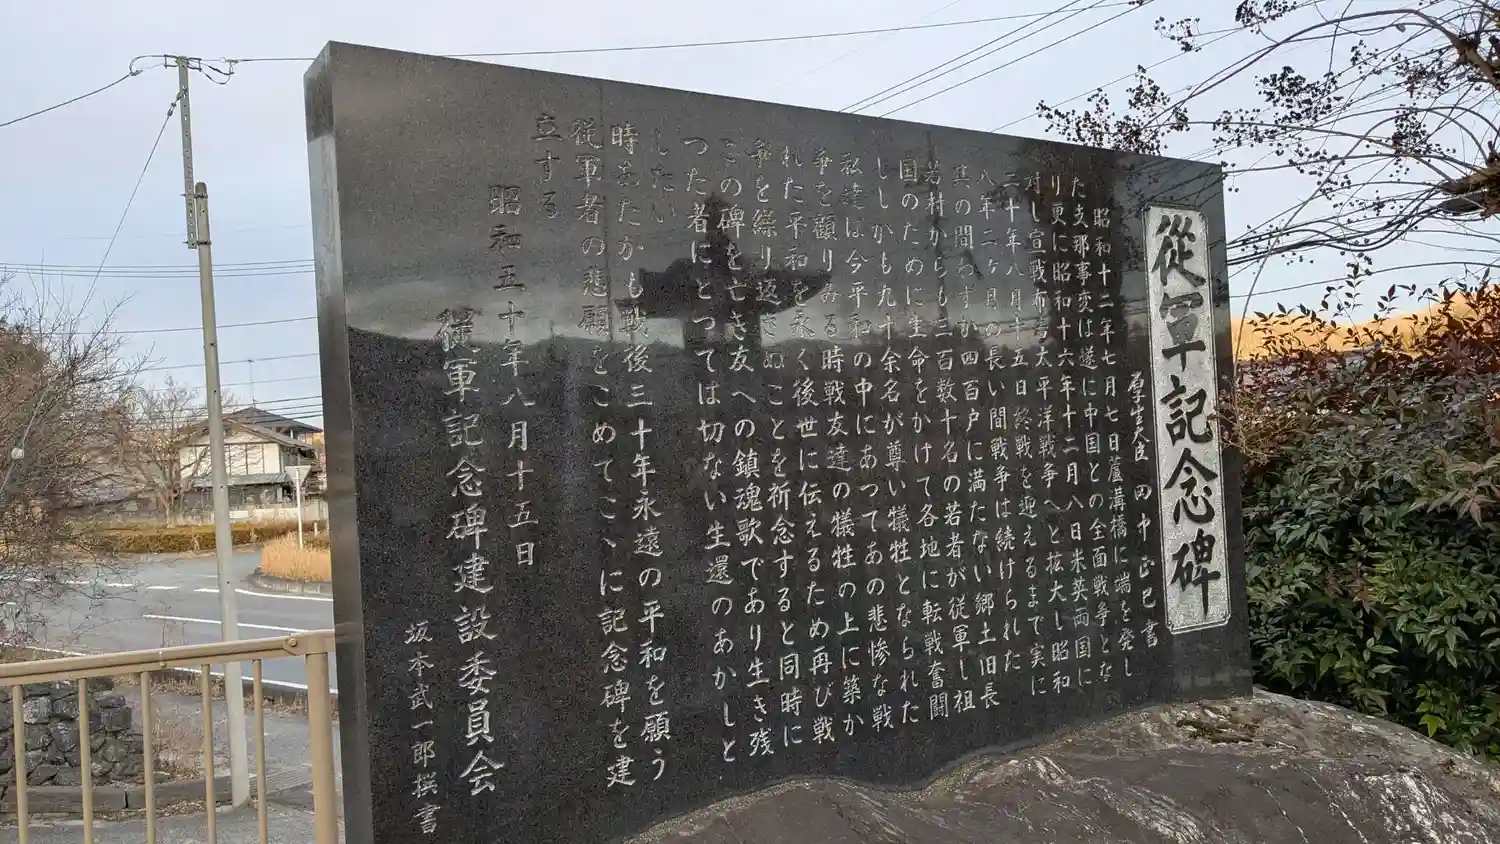 從軍記念碑
厚生大臣 田中正巳書
昭和十二年七月七日蘆溝橋に端を発し
た支那事変は遂に中国との全面戦争とな
り更に昭和十六年十二月八日米英両国に
対し宣戦布告太平洋戦争へと拡大し昭和
二十年八月十五日終戦を迎えるまで実に
八年二ヶ月の長い間戦争は続けられた
其の間わずか四百戸に満たない郷土旧長
若村からも三百数十名の若者が従軍し祖
国のために生命をかけて各地に転戦奮闘
ししかも九十余名が尊い犠牲となられた
私達は今平和の中にあつてあの悲惨な戦
争を顧りみる時戦友達の犠牲の上に築か
れた平和を永く後世に伝えるため再び戦
争を繰り返さぬことを祈念すると同時に
この碑を亡き友への鎮魂歌であり生き残
つた者にとつては切ない生還のあかしと
したい
時あたかも戦後三十年永遠の平和を願う
従軍者の悲願をこめてこゝに記念碑を建
立する
昭和五十年八月十五日
従軍記念碑建設委員会
坂本武一郎撰書